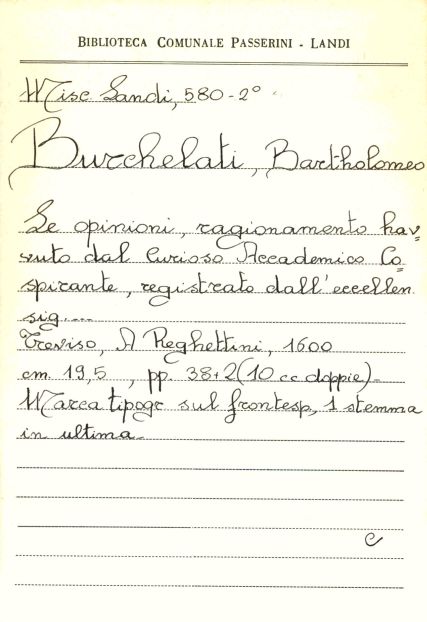 BIBLIOTECA COMUNALE PASSERINI - LANDI
Misc Landi, 580-2°
Burchelati, Bartholomeo
Le opinioni, ragionamento hav=
vuto dal Curioso Accademico Co=
spirante, registrato dall'eccellen
sig....
Treviso, A Reghettini, 1600
cm. 19,5 , pp. 38+2 (10 cc doppie)-
Marca tipogr sul frontesp, 1 stemma
in ultima-
e